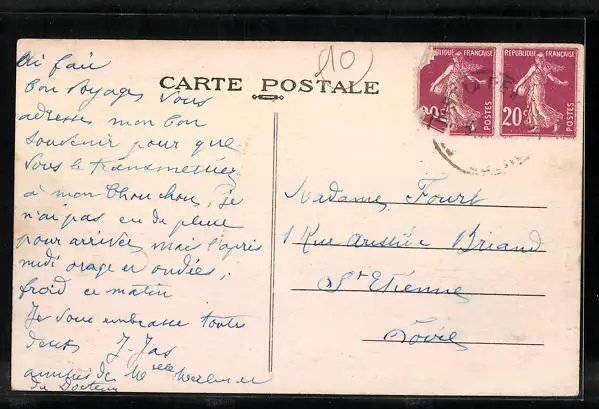 CARTE POSTALE
10
RÉPUBLIQUE FRANÇAISE
POSTES
RÉPUBLIQUE FRANÇAISE
20c
POSTES
Ai fait
bon voyage, vous
adresse mon bon
souvenir pour que
vous le transmettiez
à mon Chouchou, je
n'ai pas eu de pluie
pour arriver, mais l'après
midi orage et ondées,
froid ce matin
Je vous embrasse toute
J Jas
amitiés de Melle
du Docteur
Madame Fourt
1 Rue Aristide Briand
St Etienne
Loire